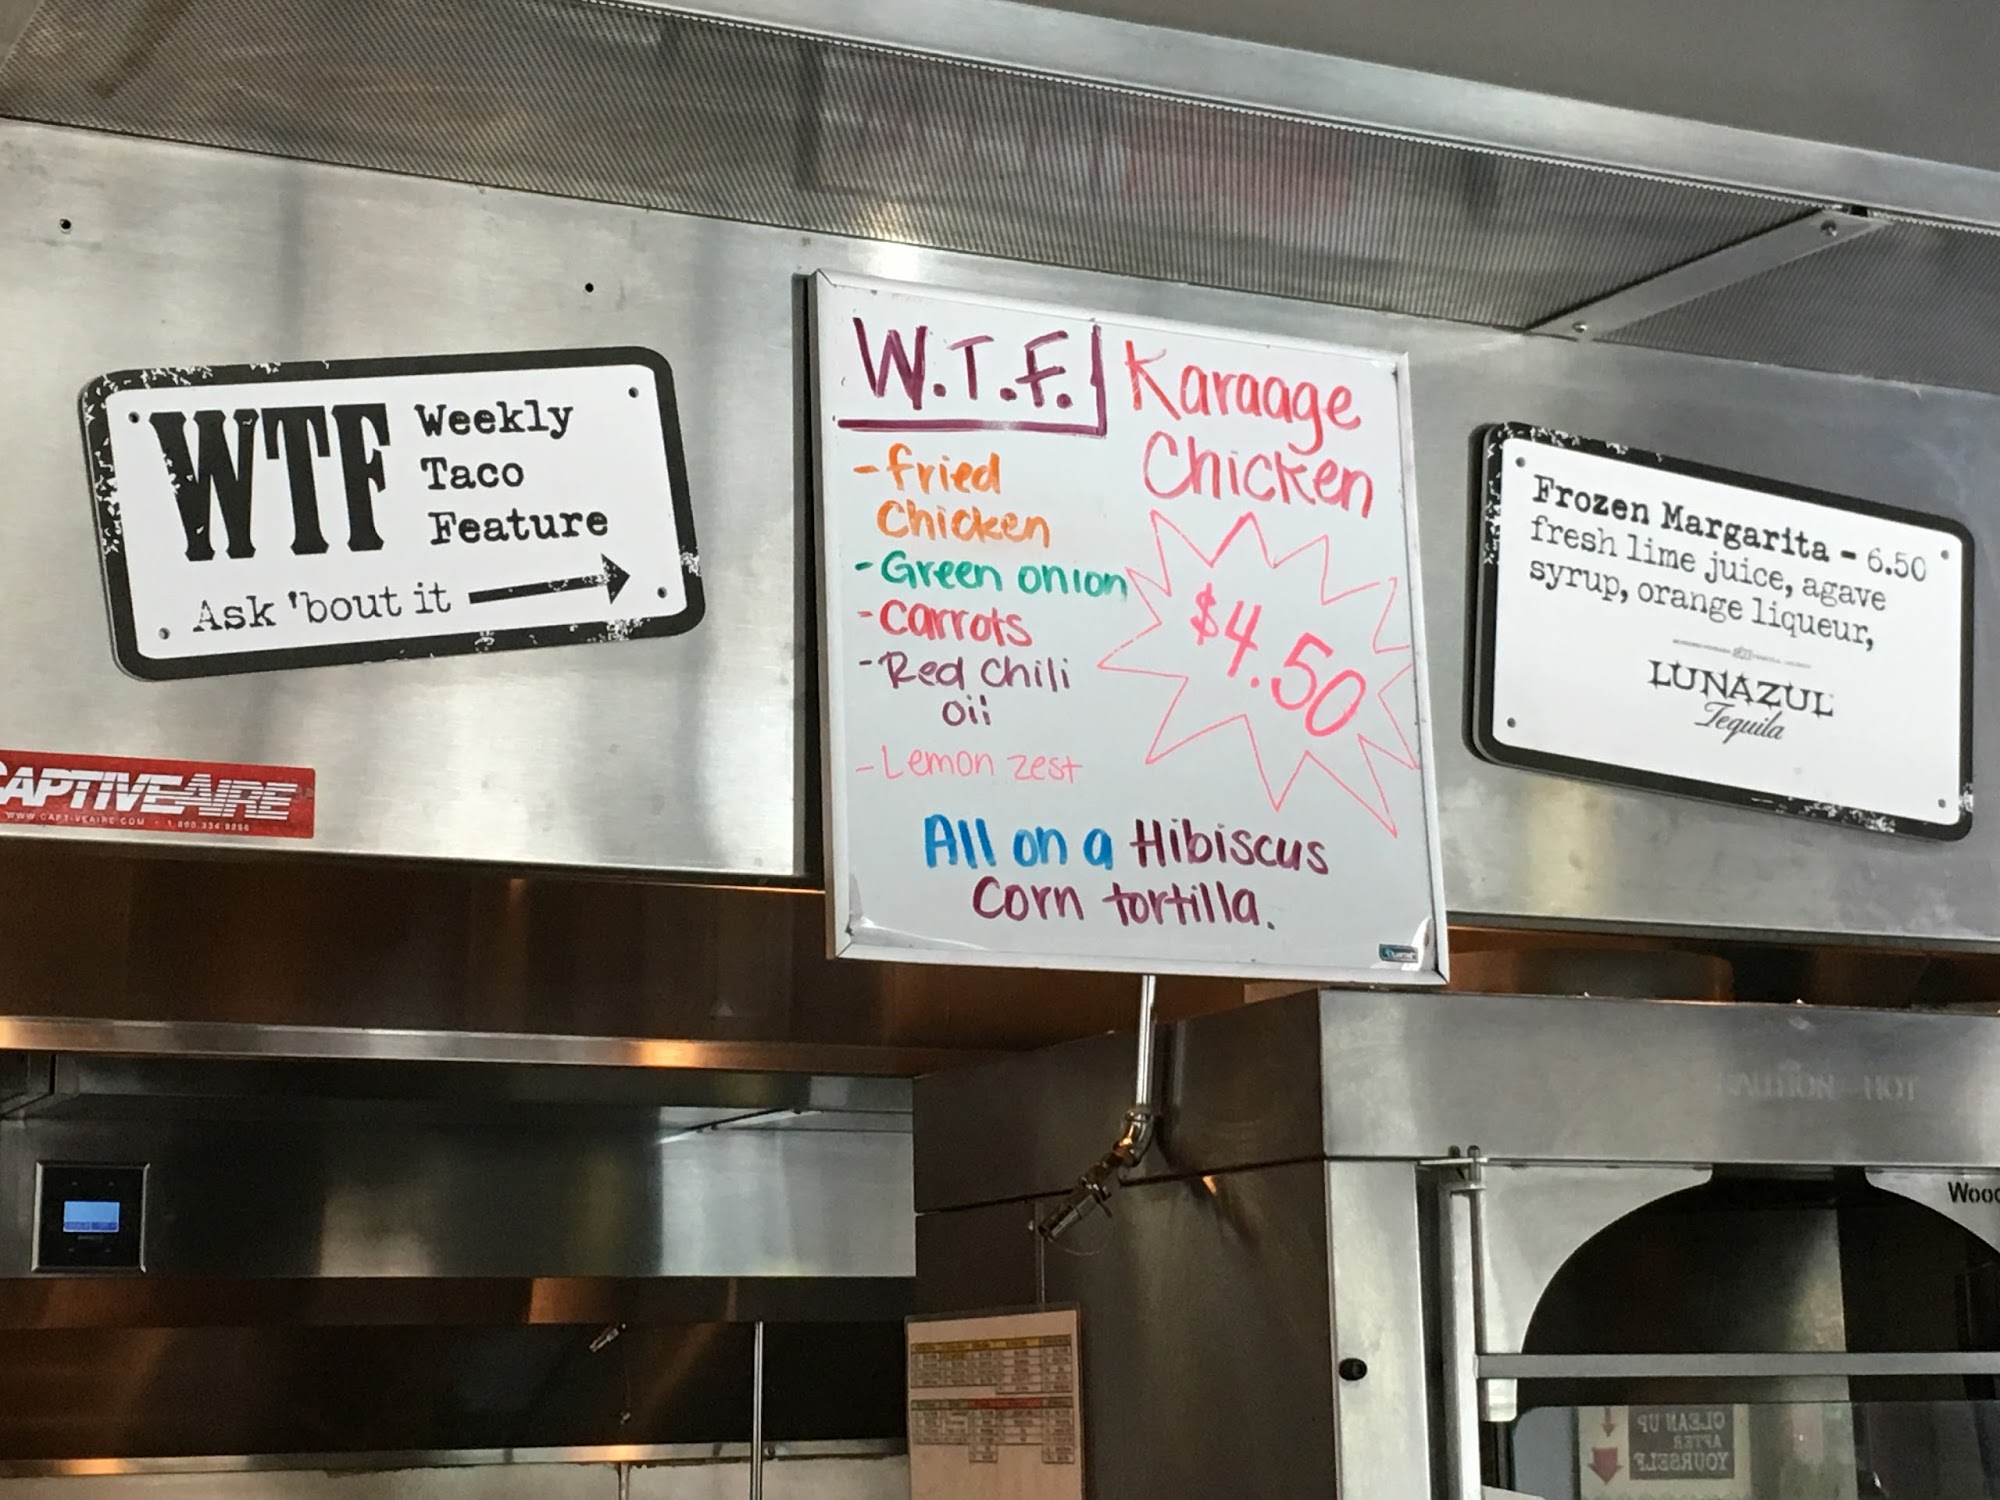 WTF Weekly
Taco
Feature
Ask 'bout it
CAPTIVEAIRE
W.T.F.
Karaage
Chicken
-fried
Chicken
-Green onion
-Carrots
-Red Chili
Oil
-Lemon zest
$4.50
All on a Hibiscus
Corn tortilla.
Frozen Margarita - 6.50
fresh lime juice, agave
syrup, orange liqueur,
LUNAZUL
Tequila
CAUTION HOT
CLEAN UP
AFTER
YOURSELF